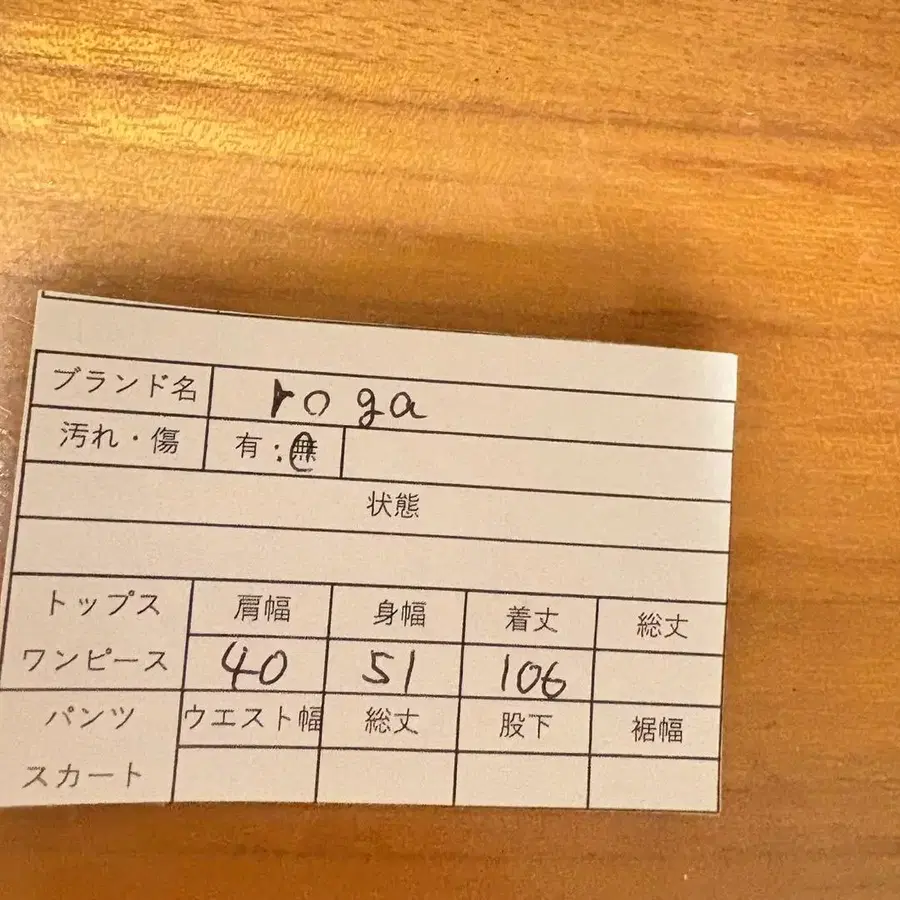 ブランド名 roga
汚れ・傷 有:無
状態
トップス 肩幅 身幅 着丈 総丈
ワンピース 40 51 106
パンツ ウエスト幅 総丈 股下 裾幅
スカート